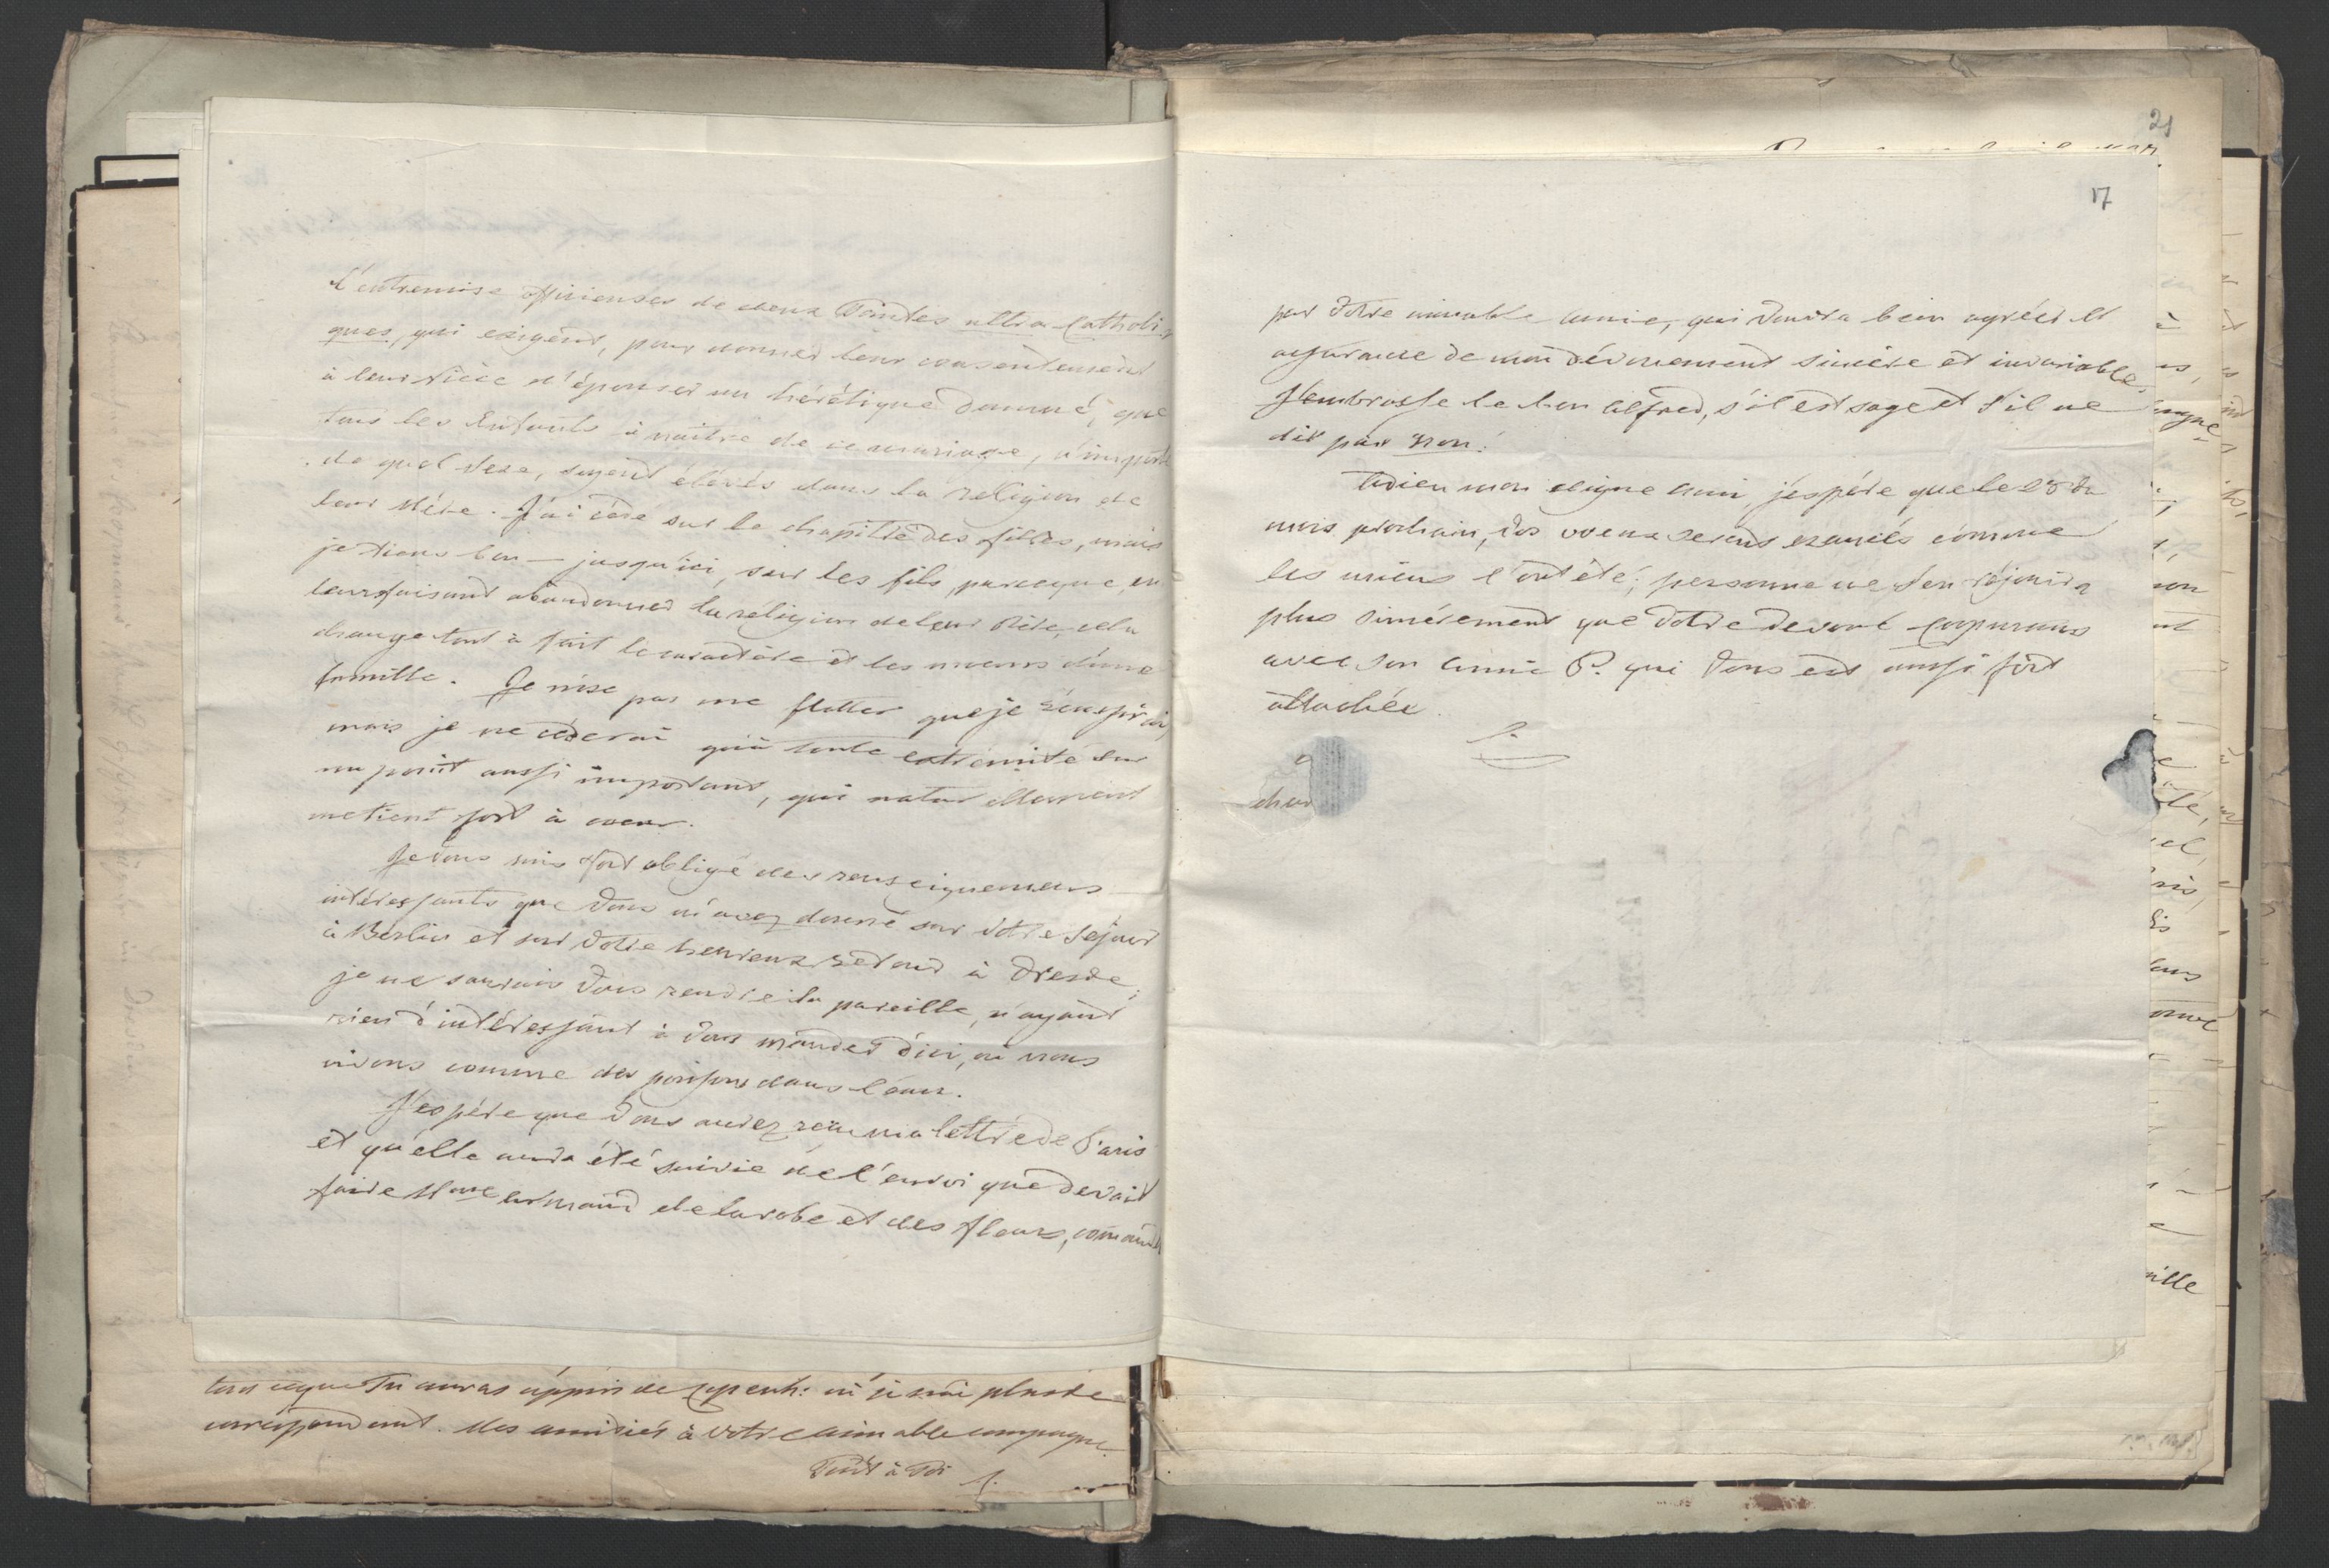 l'entremise officieuse de deux Tantes ultra-Catholi-
ques, qui exigent, pour donner leur consentement
à leur Nièce d'épouser un hérétique damné, que
tous les Enfants à naître de ce mariage, n'importe
de quel sexe, soyent élevés dans la religion de
leur Mère. J'ai cédé sur le chapitre des filles, mais
je tiens bon — jusqu'ici, sur les fils, parceque, en
leur faisant abandonner la réligion de leur Père, cela
change tout à fait le caractère et les moeurs d'une
famille. Je n'ose pas me flatter que je réussirai,
mais je ne céderai qu'à toute extrémité sur
un point aussi important, qui naturellement
me tient fort à coeur.
Je vous suis fort obligé des renseignemens
intéressants que Vous m'avez donné sur Votre Séjour
à Berlin et sur Votre heureux retour à Dresde;
je ne saurais Vous rendre la pareille, n'ayant
rien d'intéressant à Vous mander d'ici, où nous
vivons comme des poissons dans l'eau.
J'espére que Vous aurez reçu ma lettre de Paris
et qu'elle aura été suivie de l'envoi que devait
faire Mme Armand de la robe et des fleurs, commandés
tout ceque Tu auras appris de Copenh: où je n'ai plus de
correspondant. Mes amitiés à Votre aimable compagne.
Tout à Toi
21
17
par Votre aimable amie, qui voudra bien agréer l'
assurance de mon dévouement sincère et invariable.
J'embrasse le bon Alfred, s'il est sage et s'il ne
dit pas non!
Adieu mon digne ami, j'espére que le du
mois prochain, Vos voeux seront exaucés comme
les miens l'ont été; personne ne s'en réjouira
plus sincérement que Votre devoué
avec son amie P. qui Vous est aussi fort
attachée.